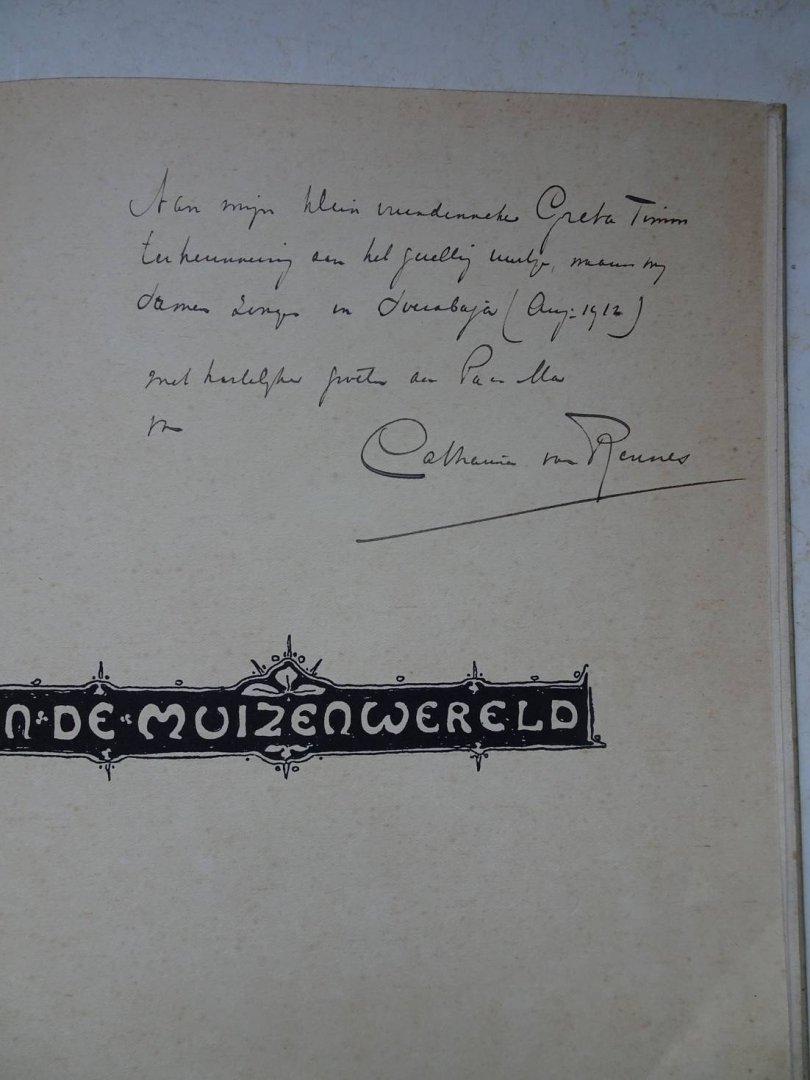 Aan mijn klein vriendinneke Greta Timm
ter herinnering aan het gezellig uurtje, waarin wij
samen zongen in Soerabaja (Aug: 1912)
met hartelijke groeten aan Pa en Ma
van
Catharina van Rennes
N DE MUIZENWERELD